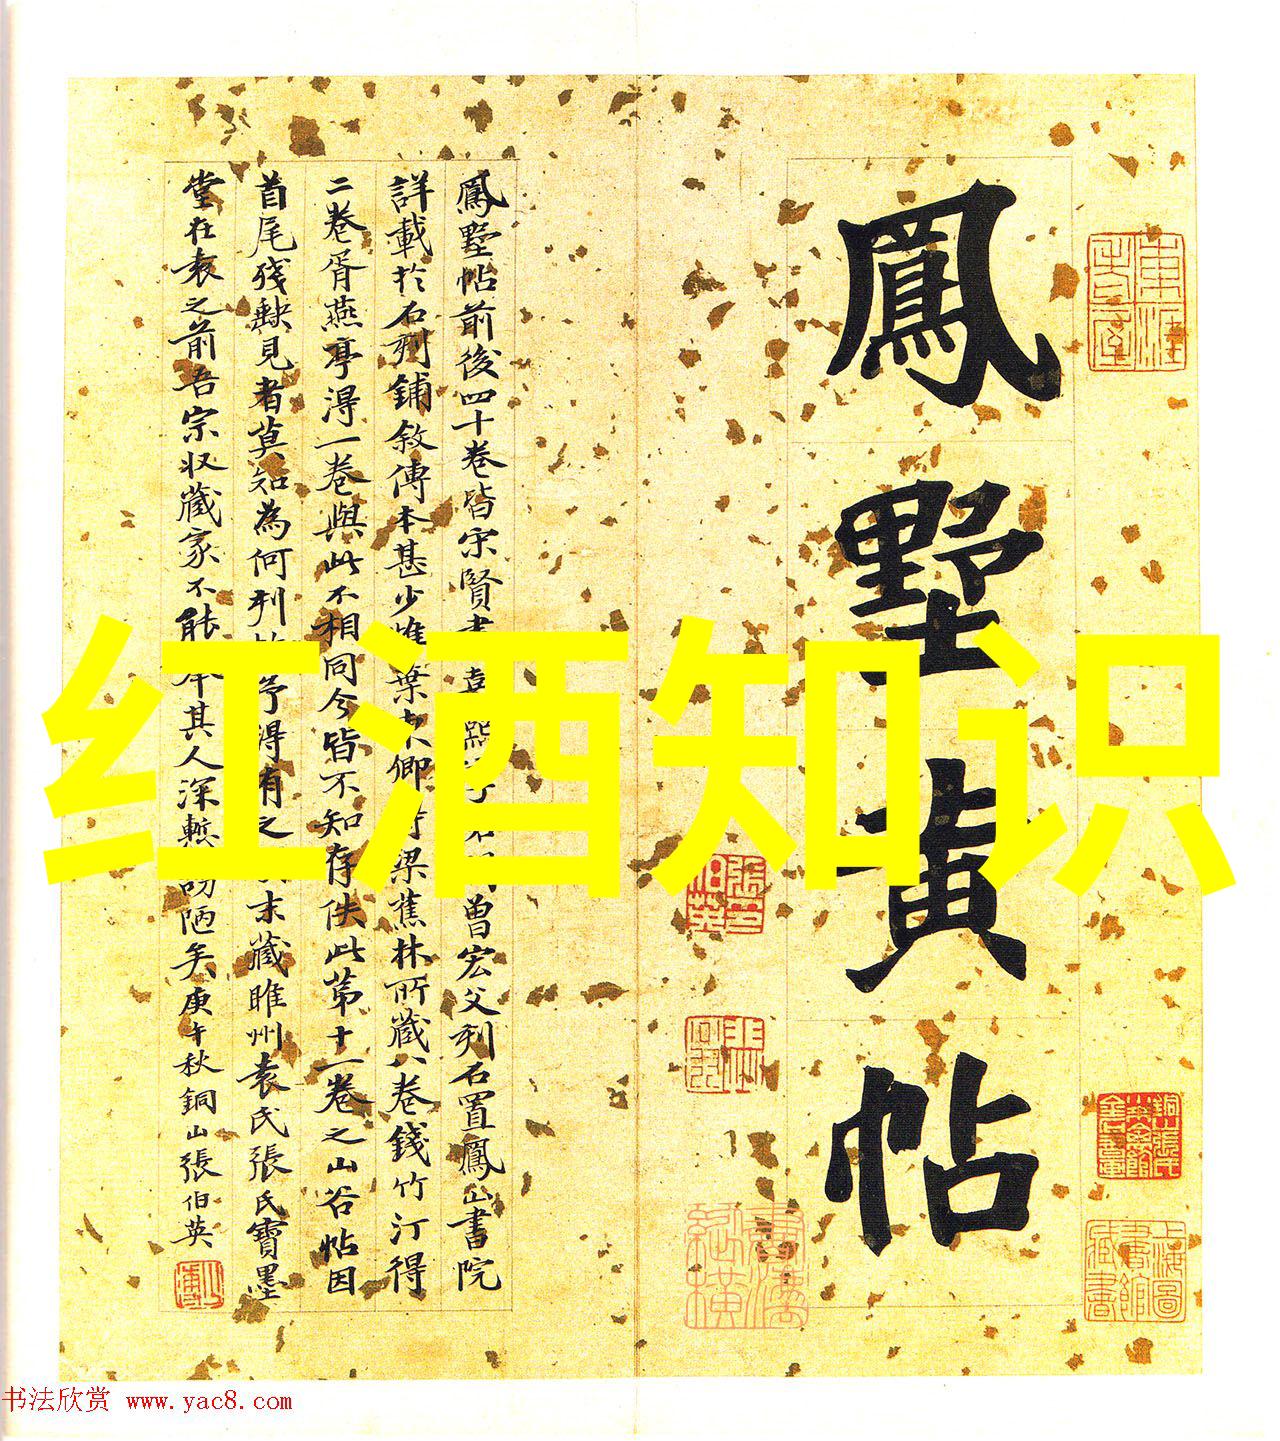 鳳墅黄帖
鳳墅帖前後四十卷皆宋賢書熙曾宏父刻石置鳳山書院
詳載於石刻鋪敘傳本甚少惟葉卿梁蕉林所藏八卷錢竹汀得
二卷胥燕亭得一卷與此不相同今皆不知存佚此第十一卷之山谷帖因
首尾殘缺見者莫知為何刻予得有之末藏睢州袁氏張氏寶墨
堂在袁之前吾宗収藏家不能其人深慙陋矣庚午秋銅山張伯英
上海圖書館藏書
红酒知识
书法欣赏 www.yac8.com